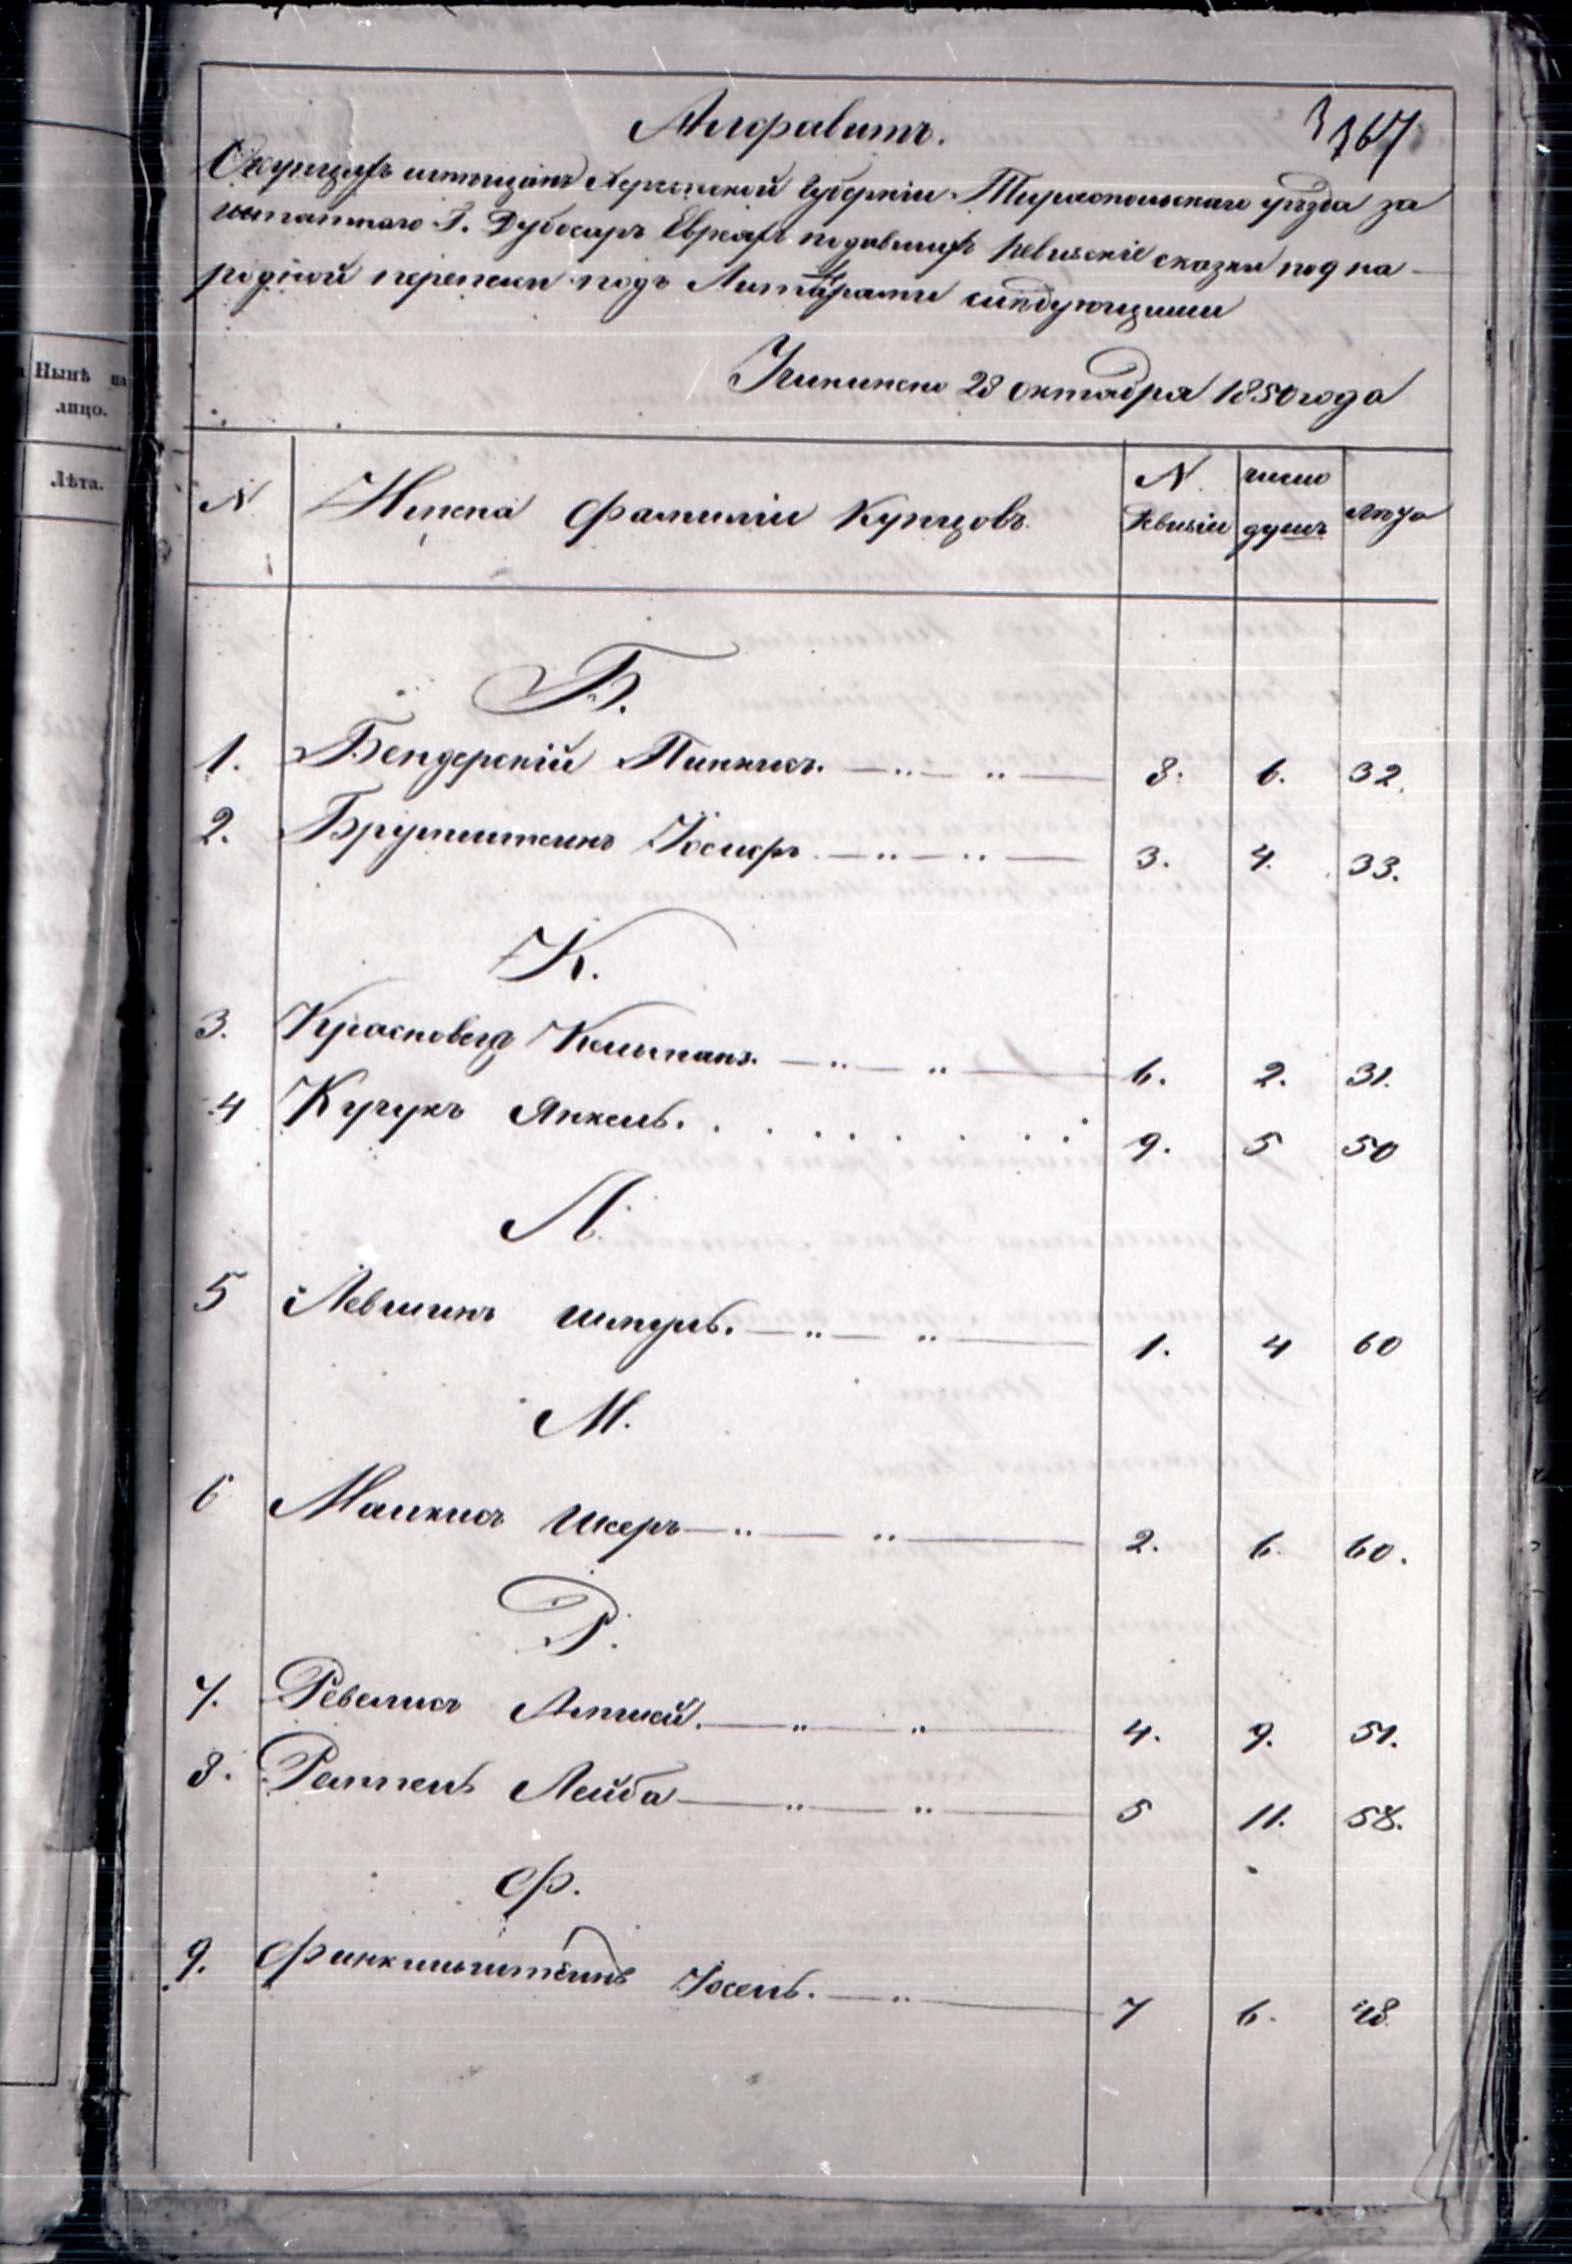 Алфавитъ.
367
О купцахъ и мещанъ Херсонской Губерніи Тираспольскаго уѣзда за
штатнаго Г. Дубосаръ Евреяхъ подавшихъ ревизскіе сказки по 9 на
родной переписи подъ Литерами слѣдующими
Учинено 28 октября 1850 года
Нынѣ на
лицо.
Лѣта.
N Имена фамиліи Купцовъ N Ревизіи число душъ лѣта
Б.
1. Бендерскій Пинкасъ. 8. 6. 32.
2. Брумштеинъ Іосифъ 3. 4. 33.
К.
3. Красновецъ Кельманъ. 6. 2. 31.
4 Кучукъ Янкель. 9. 5 50
Л.
5 Левшинъ Шмуль. 1. 4 60
М.
6 Малкисъ Шхеръ 2. 6. 60.
Р.
7. Ревелисъ 4. 9. 51.
8. Лейба 5 11. 58.
Ф.
9. Финкильштеинъ Іосель. 7 6. 48